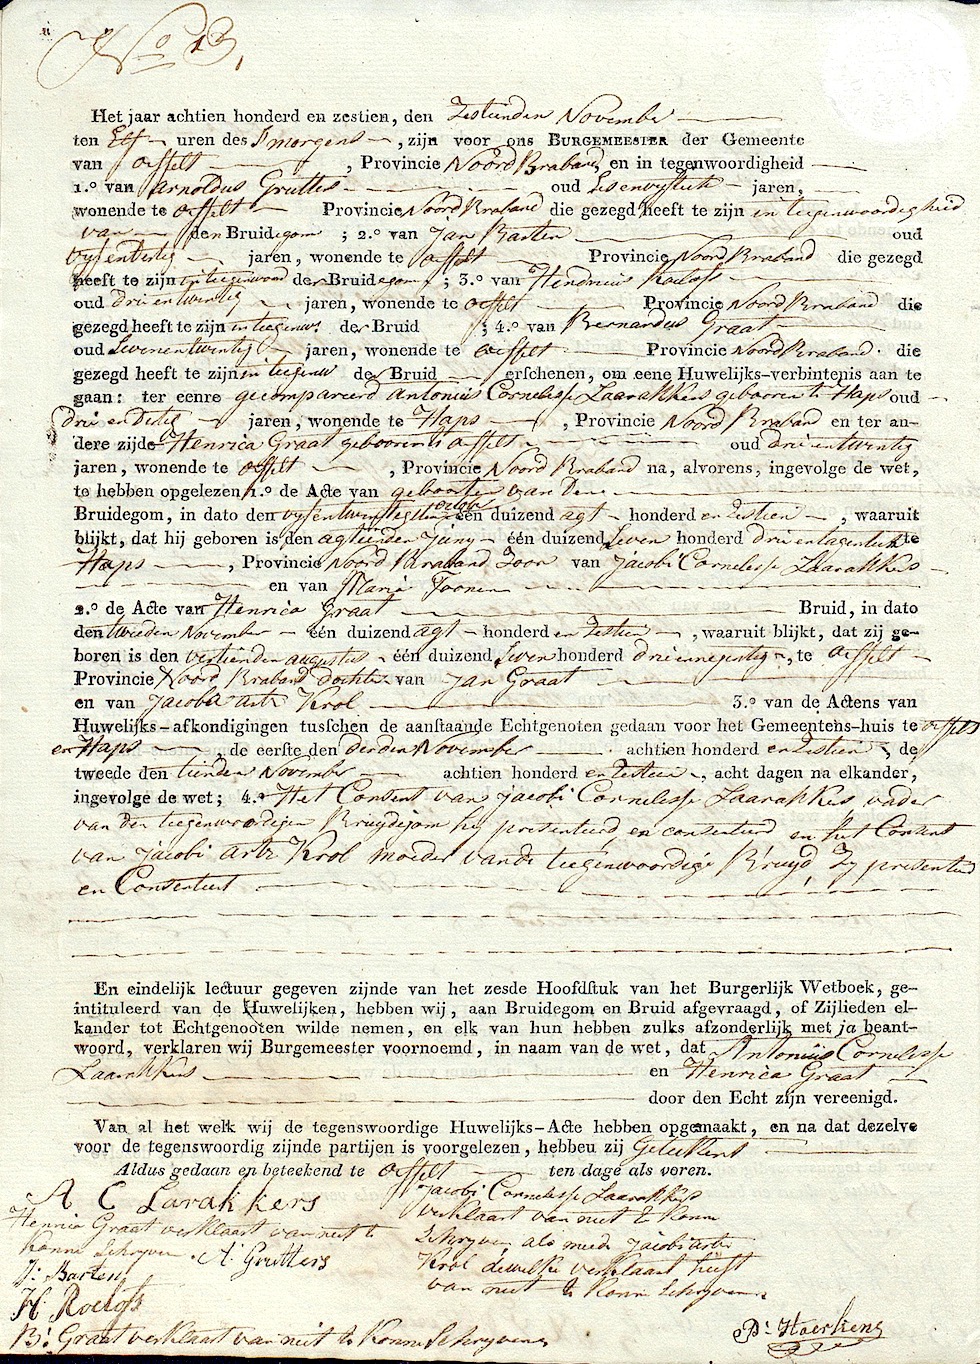 No 13,
Het jaar achtien honderd en zestien, den Zestienden November
ten Elf uren des Smorgens, zijn voor ons BURGEMEESTER der Gemeente
van oeffelt, Provincie Noord Braband, en in tegenwoordigheid
1.o van Arnoldus Grutters oud jaren,
wonende te oeffelt Provincie Noord Braband die gezegd heeft te zijn in teegenwoordigheid
van den Bruidegom ; 2.o van Jan Barten oud
vyfendertig jaren, wonende te oeffelt Provincie Noord Braband die gezegd
heeft te zijn in teegenwoord der Bruidegom ; 3.o van Hendricus Roelofs
oud drie en twintig jaren, wonende te oeffelt Provincie Noord Braband die
gezegd heeft te zijn in teegenw: der Bruid ; 4.o van Bernardus Graat
oud Sevenentwintig jaren, wonende te oeffelt Provincie Noord Braband. die
gezegd heeft te zijn in teegenw der Bruid erschenen, om eene Huwelijks-verbintenis aan te
gaan: ter eenre gecompareerd Antonius Cornelisse Laarakkers gebooren te Haps oud
drie en dertig jaren, wonende te Haps, Provincie Noord Braband en ter an-
dere zijde Henrica Graat gebooren te oeffelt oud drie en twintig
jaren, wonende te oeffelt, Provincie Noord Braband na, alvorens, ingevolge de wet,
te hebben opgelezen 1.o de Acte van geboorte van Den
Bruidegom, in dato den vyfentwintigsten october één duizend agt honderd en Zestien, waaruit
blijkt, dat hij geboren is den agtienden Juny één duizend Seven honderd drie en tagentich te
Haps, Provincie Noord Braband Zoon van Jacobi Cornelisse Laarakkers
en van Maria Toonen
2.o de Acte van Henrica Graat Bruid, in dato
den tweeden November één duizend agt honderd en Zestien, waaruit blijkt, dat zij ge-
boren is den veertienden augustus één duizend Seven honderd drie en negentig, te oeffelt
Provincie Noord Braband dochter van Jan Graat
en van Jacoba arts Krol 3.o van de Actens van
Huwelijks-afkondigingen tusschen de aanstaande Echtgenoten gedaan voor het Gemeentens-huis te oeffelt
en Haps, de eerste den derden November achtien honderd en Zestien, de
tweede den tienden November achtien honderd en Zestien, acht dagen na elkander,
ingevolge de wet; 4.o Het Consent van Jacobi Cornelisse Laarakkers vader
van den teegenwoordigen Bruydegom hy presenteerd en consenteerd en het Consent
van Jacobi arts Krol moeder vande teegenwoordige Bruyd, Zy presenteerd
en Consenteert
En eindelijk lectuur gegeven zijnde van het zesde Hoofdstuk van het Burgerlijk Wetboek, ge-
intituleerd van de Huwelijken, hebben wij, aan Bruidegom en Bruid afgevraagd, of Zijlieden el-
kander tot Echtgenooten wilde nemen, en elk van hun hebben zulks afzonderlijk met ja beant-
woord, verklaren wij Burgemeester voornoemd, in naam van de wet, dat Antonius Cornelisse
Laarakkers en Henrica Graat
door den Echt zijn vereenigd.
Van al het welk wij de tegenswoordige Huwelijks-Acte hebben opgemaakt, en na dat dezelve
voor de tegenswoordig zijnde partijen is voorgelezen, hebben zij Geteekent
Aldus gedaan en beteekend te oeffelt ten dage als voren.
A C Larakkers
Henrica Graat verklaart van niet te
konne Schryven. A: Grutters
J: Barten
H: Roelofs
B: Graat verklaart van niet te Konne Schryvens
Jacobi Cornelisse Laarakkers
verklaart van niet te konne
Schryven als meede Jacobi arts
Krol dewelke verklaart heeft
van niet te konne Schryven.
P: Haerkens